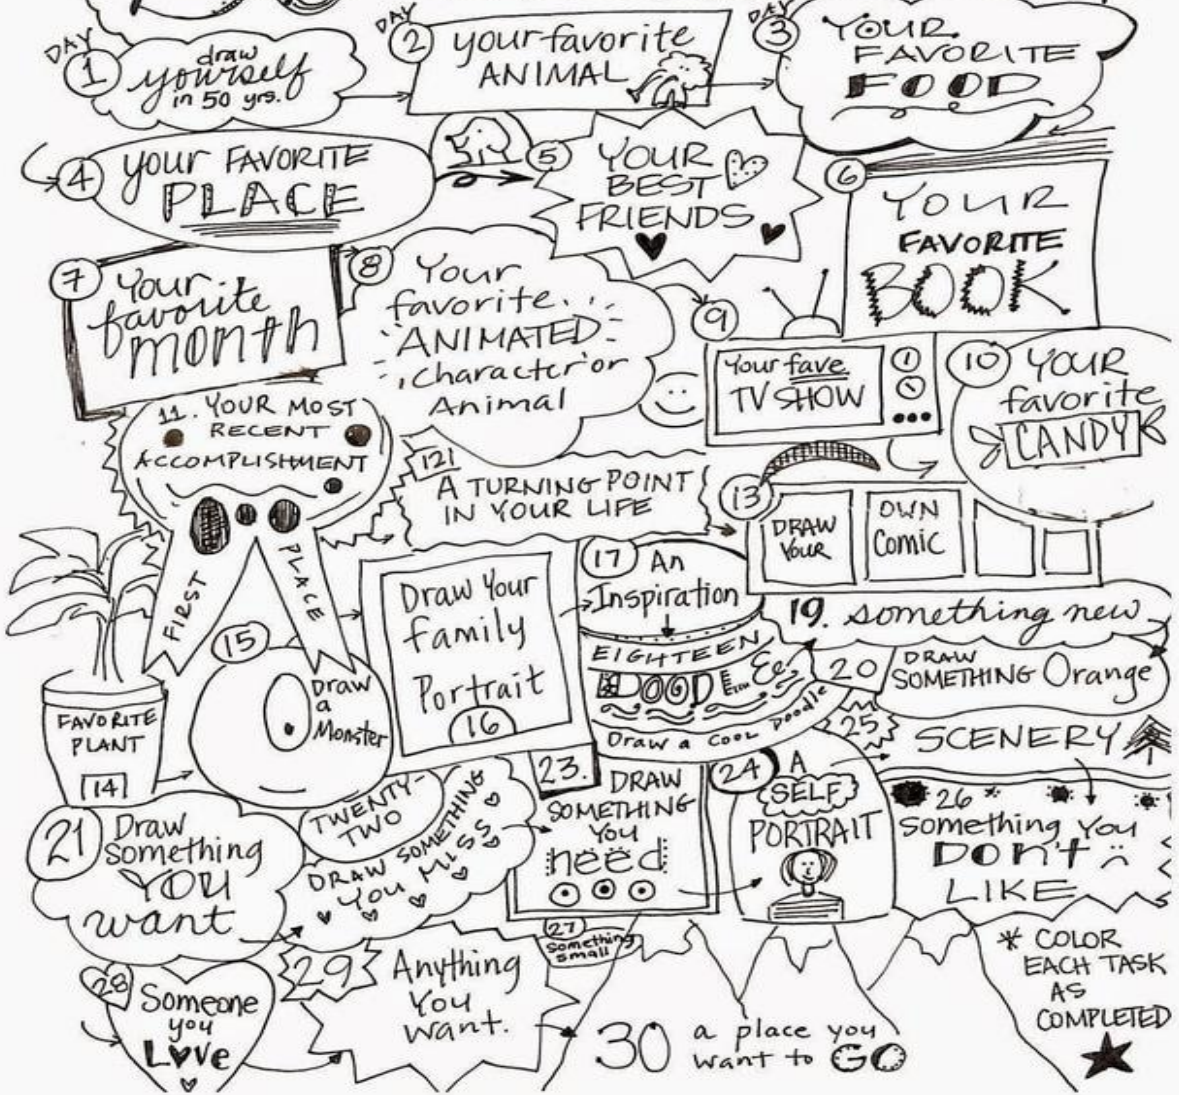 DAY
1
draw
yourself
in 50 yrs.
DAY
2
your favorite
ANIMAL
DAY
3
YOUR
FAVORITE
FOOD
4
your FAVORITE
PLACE
5
YOUR
BEST
FRIENDS
6
YOUR
FAVORITE
BOOK
7
Your
favorite
month
8
Your
favorite
ANIMATED
character or
Animal
9
Your fave
TV SHOW
10
YOUR
favorite
CANDY
11. YOUR MOST
RECENT
ACCOMPLISHMENT
FIRST
PLACE
12
A TURNING POINT
IN YOUR LIFE
13
DRAW
YOUR
OWN
Comic
FAVORITE
PLANT
14
15
Draw
a
Monster
Draw Your
family
Portrait
16
17
An
Inspiration
EIGHTEEN
DOODLE
Draw a cool Doodle
19. something new
20
DRAW
SOMETHING Orange
21
Draw
something
YOU
want
TWENTY-
TWO
DRAW SOMETHING
YOU MISS
23.
DRAW
SOMETHING
YOU
need
24
A
SELF
PORTRAIT
25
SCENERY
26
something you
DON'T
LIKE
27
something
small
28
Someone
you
Love
29
Anything
You
want.
30
a place you
want to GO
* COLOR
EACH TASK
AS
COMPLETED